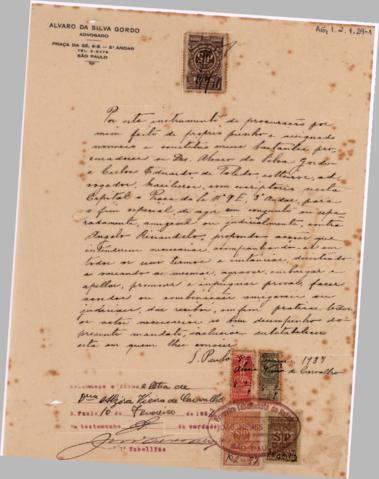 ALVARO DA SILVA GORDO
ADVOGADO
PRAÇA DA SÉ, 9-E - 3º ANDAR
SÃO PAULO
Por este instrumento de procuração por
mim feito de proprio punho e assignado
nomeio e constituo meus bastantes pro-
curadores os Drs. Alvaro da Silva Gordo
e Carlos Eduardo de Toledo, solteiros, ad-
vogados, brasileiros, com escriptorio nesta
Capital á Praça da Sé Nº 9E, 3º andar, para
o fim especial de agir em conjuncto ou sepa-
radamente, amigavel ou judicialmente, contra
Angelo Rinandelo, propondo acções que
entenderem necessarias, acompanhando-as em
todos os seus termos e instancias, desistindo
e variando as mesmas, aggravar, embargar e
apellar, promover e impugnar provas, fazer
accordos ou combinações amigaveis ou
judiciaes, dar recibos, enfim, praticar todos
os actos necessarios ao bom desempenho do
presente mandato, inclusive substabelecer
esta em quem lhes convier.
S. Paulo 1937
Vieira de Carvalho
firma
Vieira de Carvalho
S. Paulo, 10 de Fevereiro de 193
Em testemunho da verdade
Tabellião
SP
SÃO PAULO